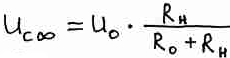 U_{c∞} = U_0 · \frac{R_H}{R_0 + R_H}